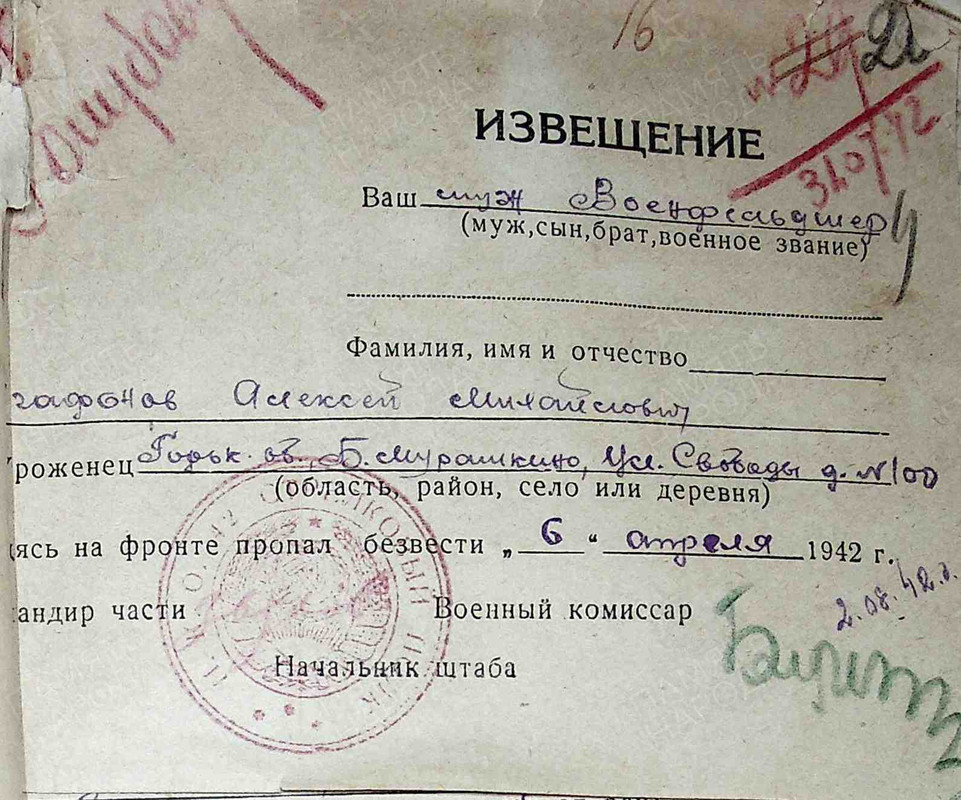 16
21
ИЗВЕЩЕНИЕ
310742
Ваш муж Военфельдшер
(муж,сын,брат,военное звание)
Фамилия, имя и отчество
гафонов Алексей Михайлович
роженец Горьк. об, Б. Мурашкино, Ул. Свободы д. №100
(область, район, село или деревня)
ясь на фронте пропал безвести „6“ апреля 1942 г.
2.08.42г.
андир части Военный комиссар
Начальник штаба